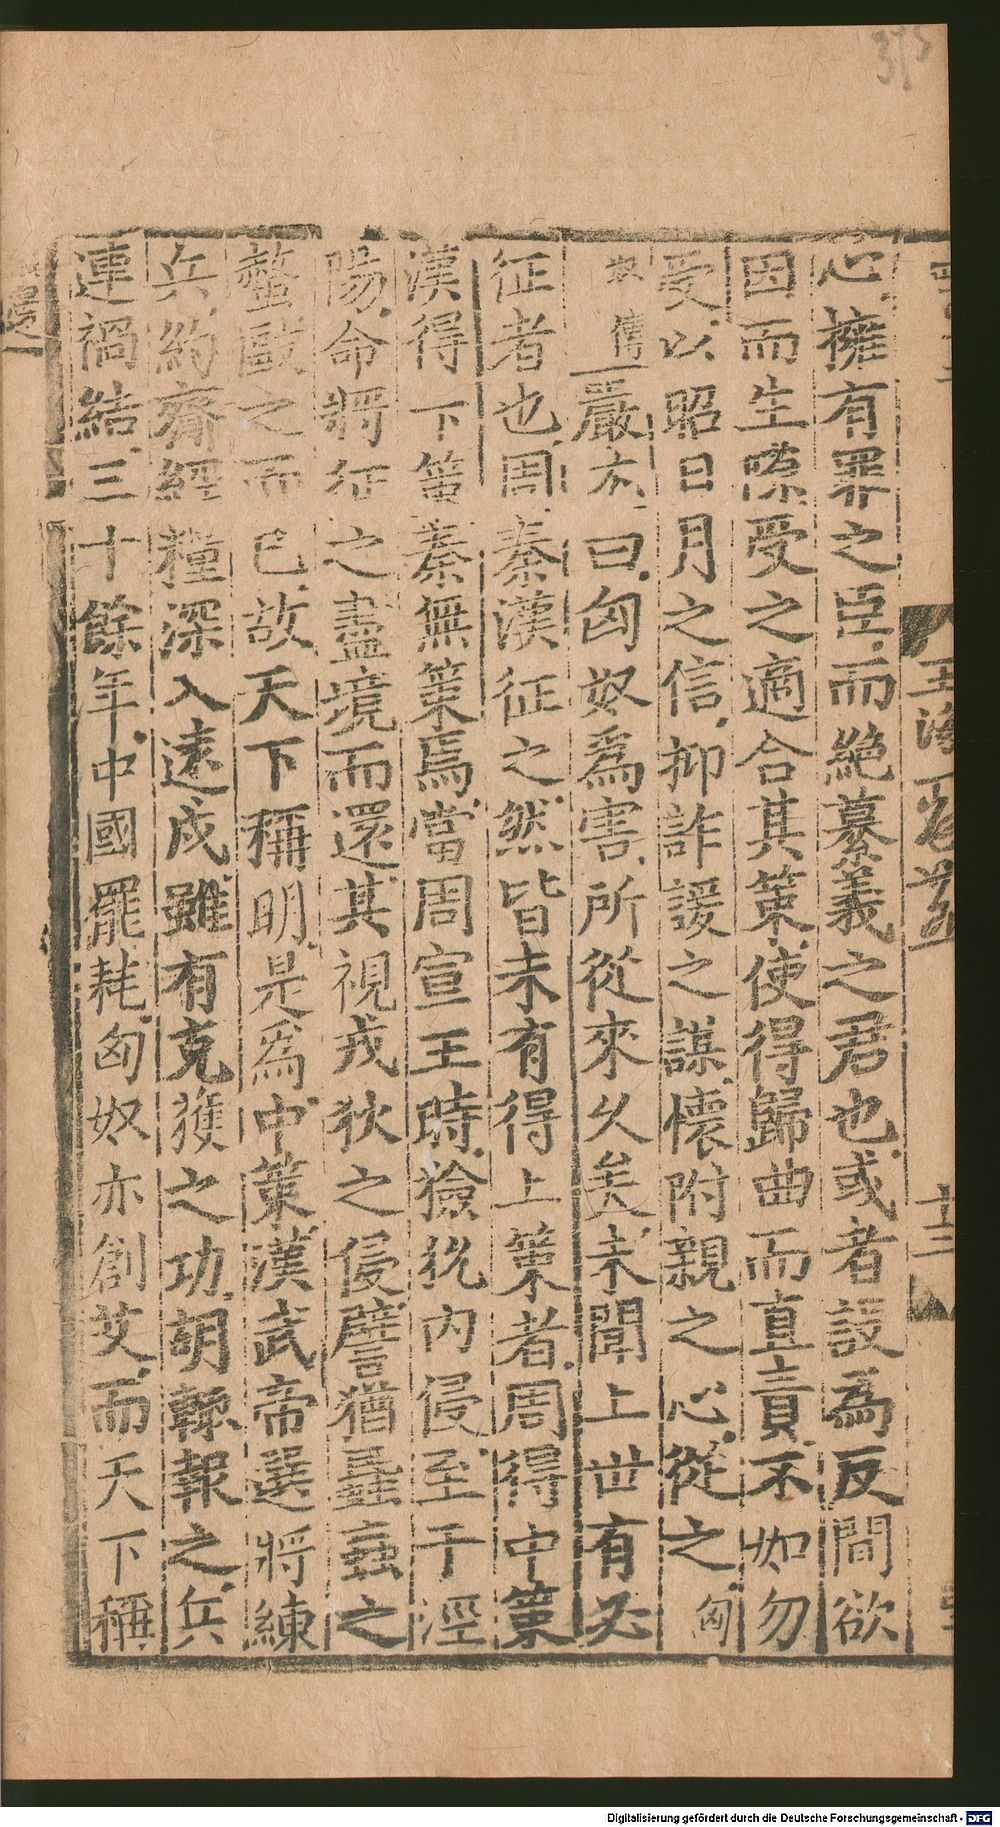 心擁有罪之臣而絶慕義之君也或者設為反間欲
因而生隙受之適合其策使得歸曲而直責不如勿
受以昭日月之信抑詐諼之謀懷附親之心從之匈
奴傳
嚴尤曰匈奴爲害所從來久矣未聞上世有必
征者也周秦漢征之然皆未有得上策者周得中策
漢得下策秦無策焉當周宣王時獫狁内侵至于涇
陽命將征之盡境而還其視戎狄之侵譬猶蟁蝱之
螫敺之而已故天下稱明是爲中策漢武帝選將練
兵約齎輕糧深入遠戍雖有克獲之功胡輙報之兵
連禍結三十餘年中國罷耗匈奴亦創艾而天下稱
十三
Digitalisierung gefördert durch die Deutsche Forschungsgemeinschaft - DFG